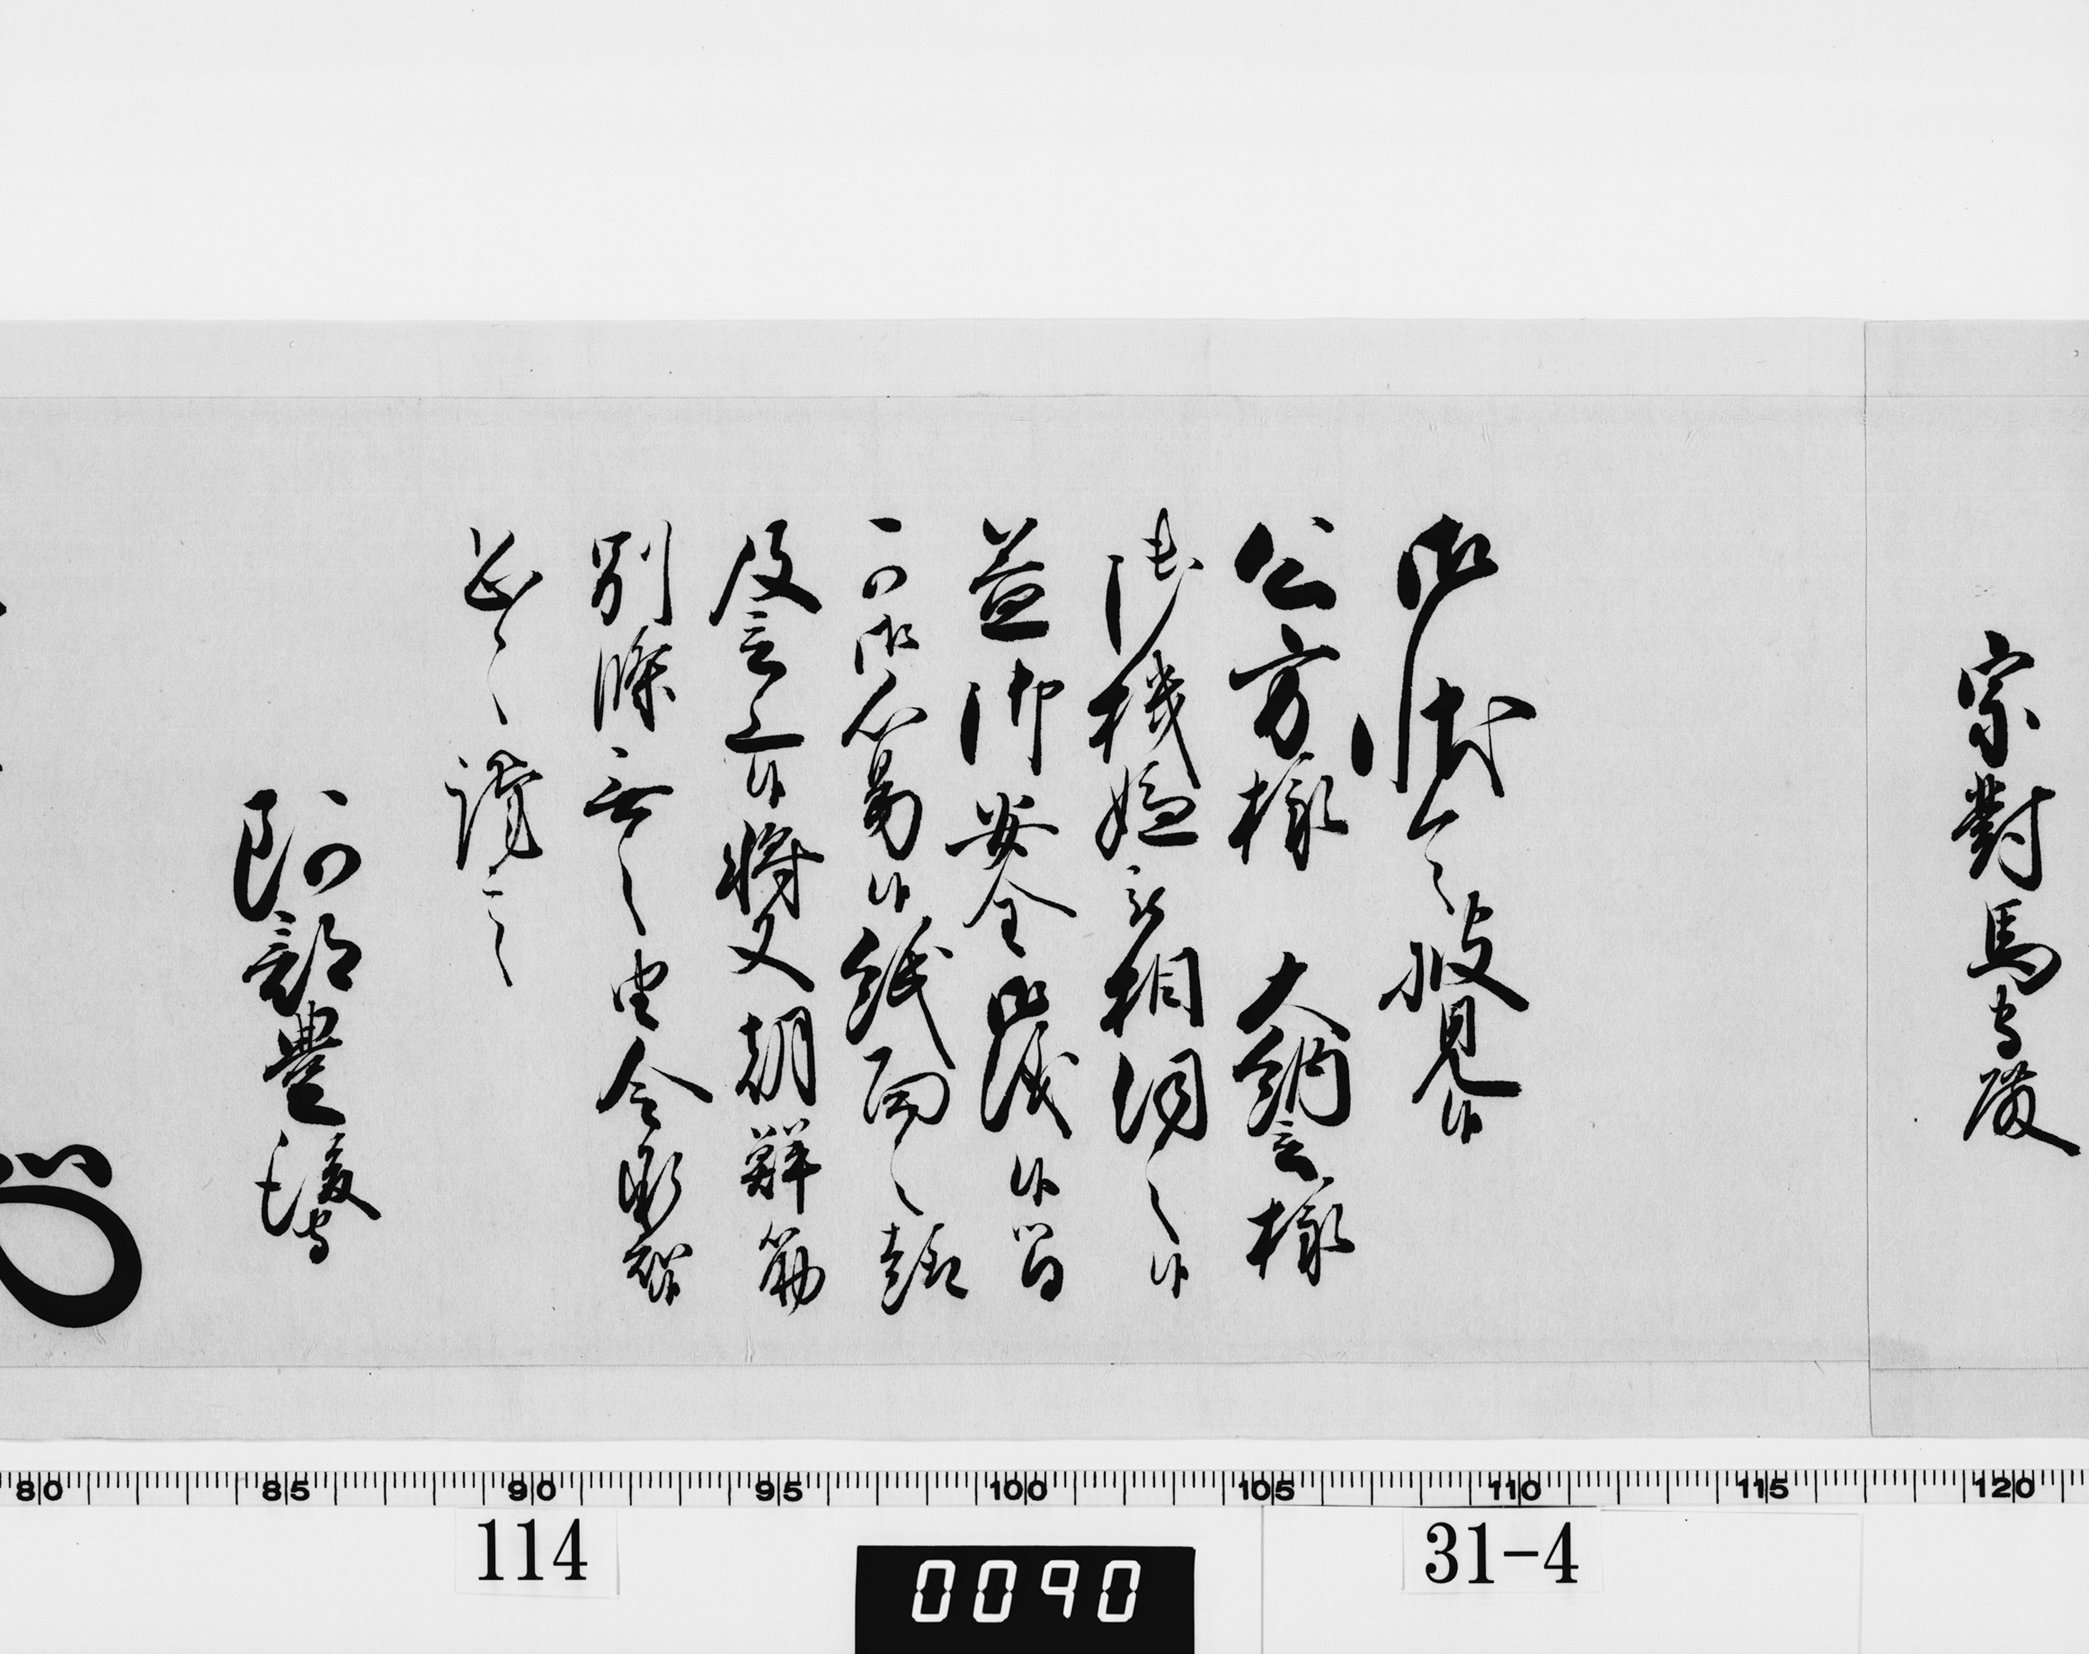 宗對馬守殿
御状令披見候
公方様 大納言様
御機嫌被相伺之候
益御安全御儀候間
可御心易候紙面之趣
及言上候将又朝鮮筋
別條無之由令承知候
恐々謹言
阿部豊後守
80 85 90 95 100 105 110 115 120
114
0090
31-4